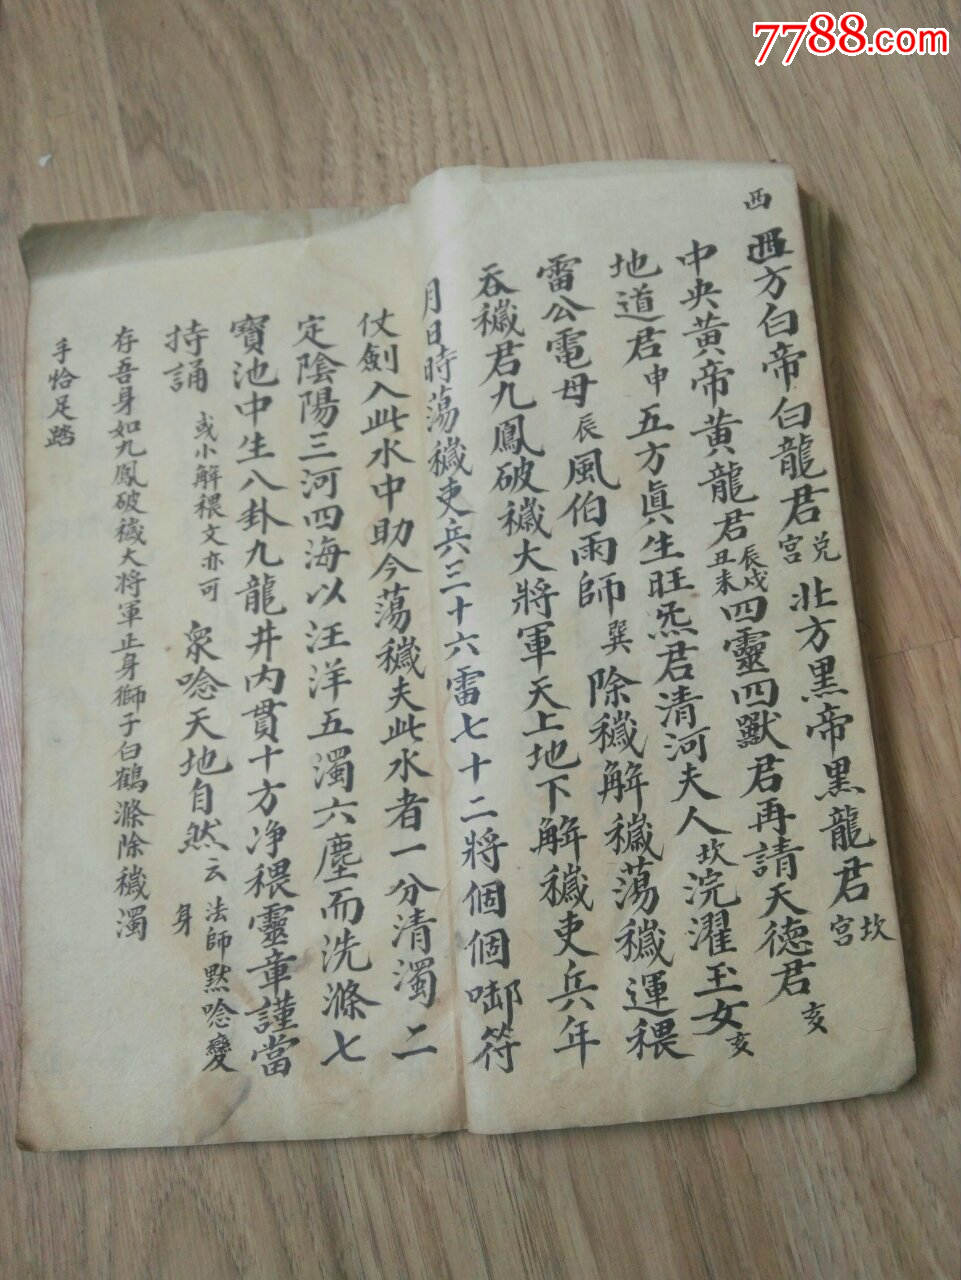 7788.com
西
西方白帝白龍君兑宮北方黑帝黑龍君坎宮
中央黄帝黄龍君辰戌丑未四靈四獸君再請天德君亥
地道君申五方眞生旺炁君清河夫人坎浣濯玉女亥
雷公電母辰風伯雨師巽除穢解穢蕩穢運穢
吞穢君九鳳破穢大將軍天上地下解穢吏兵年
月日時蕩穢吏兵三十六雷七十二將個個啣符
仗劍入此水中助今蕩穢夫此水者一分清濁二
定陰陽三河四海以汪洋五濁六塵而洗滌七
寶池中生八卦九龍井内貫十方净穢靈章謹當
持誦或小解穢文亦可衆唸天地自然云法師默唸變身
存吾身如九鳳破穢大將軍正身獅子白鶴滌除穢濁
手恰足踏